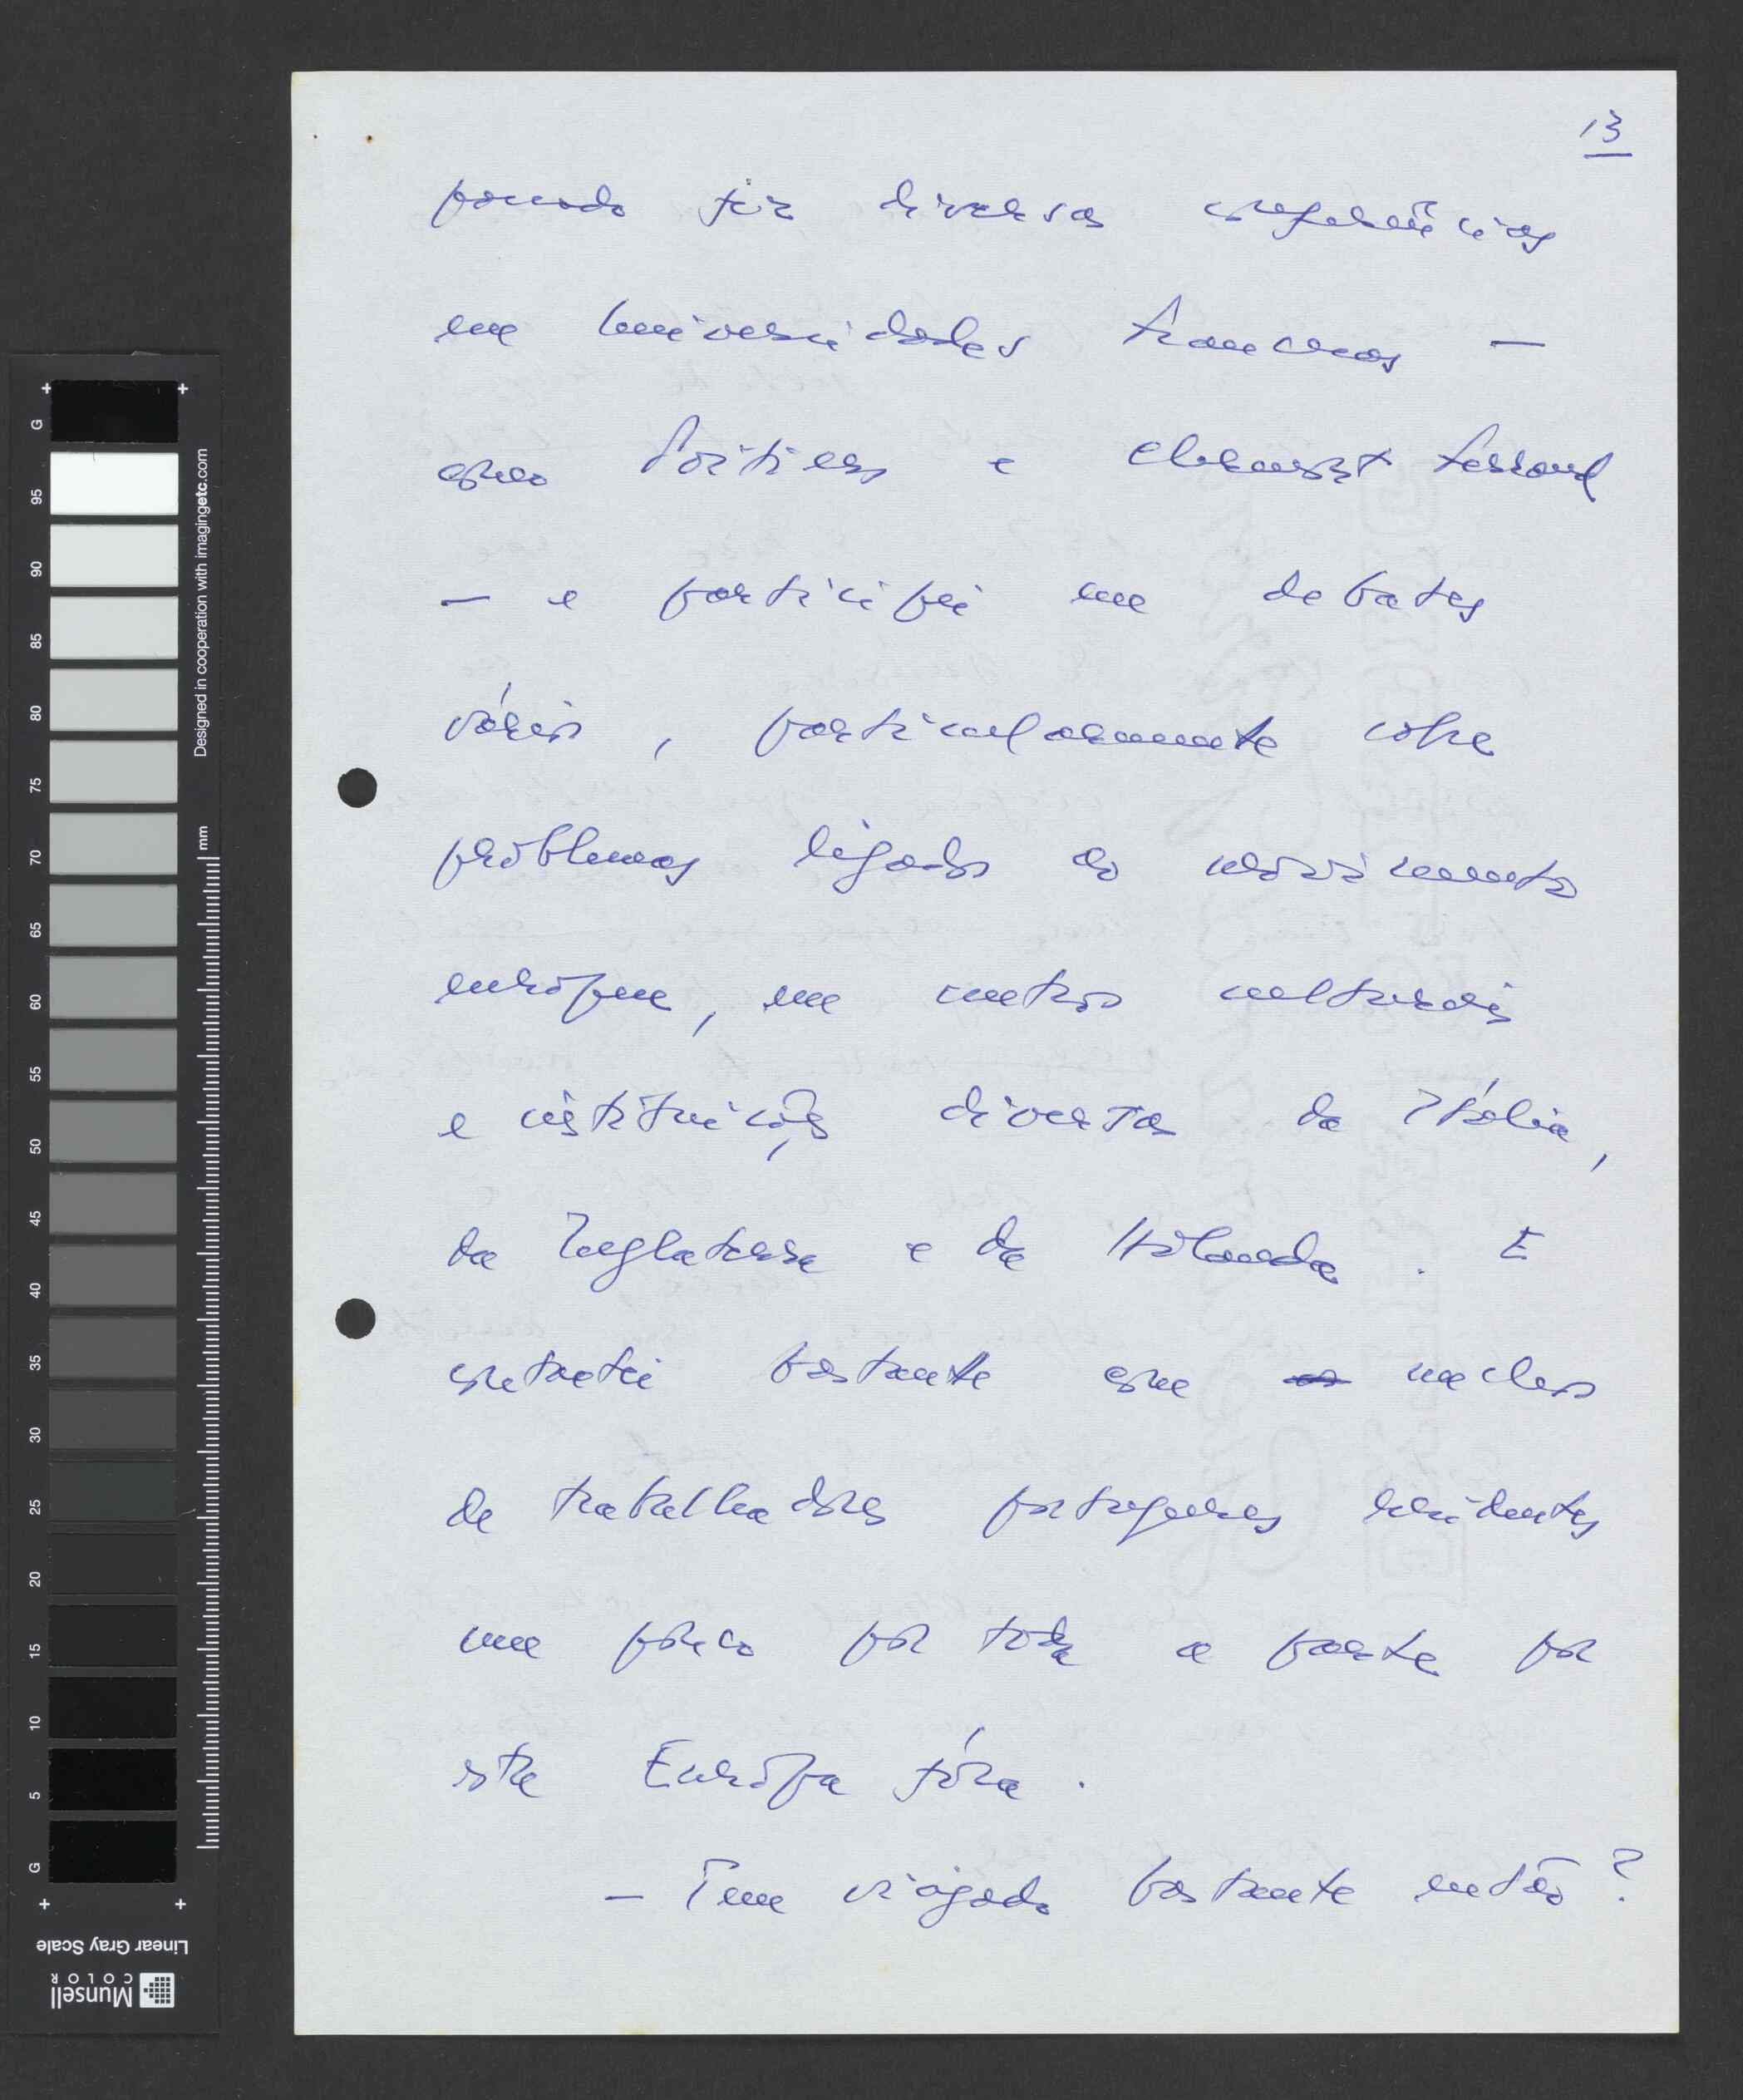 13
passado fiz diversas conferências
em Universidades francesas —
como Poitiers e Clermont Ferrand
— e participei em debates
vários, particularmente sobre
problemas ligados ao movimento
europeu, em centros culturais
e instituições diversas da Itália,
da Inglaterra e da Holanda. E
contactei bastante com núcleos
de trabalhadores portugueses residentes
um pouco por toda a parte por
esta Europa fóra.
— Tem viajado bastante então?
Designed in cooperation with imagingetc.com
mm
G
95
90
85
80
75
70
65
60
55
50
45
40
35
30
25
20
15
10
5
G
Linear Gray Scale
Munsell
COLOR